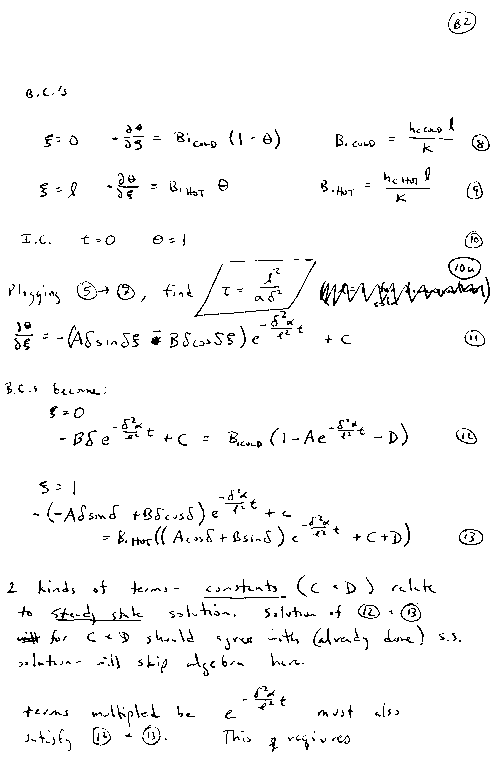 B2
B.C.'s
ξ = 0   -∂θ/∂ξ = Bi_COLD (1 - θ)   Bi_COLD = h_c COLD l / K   (8)
ξ = l   -∂θ/∂ξ = Bi_HOT θ   Bi_HOT = h_c HOT l / K   (9)
I.C.   t = 0   θ = 1   (10)
Plugging (5) → (7), find   τ = l² / αδ²   (10a)
∂θ/∂ξ = -(Aδ sin δξ - Bδ cos δξ) e^{-δ²α/l² t} + C   (11)
B.C.s become:
ξ = 0
-Bδ e^{-δ²α/l² t} + C = Bi_COLD (1 - A e^{-δ²α/l² t} - D)   (12)
ξ = 1
-(-Aδ sin δ + Bδ cos δ) e^{-δ²α/l² t} + C
= Bi_HOT ((A cos δ + B sin δ) e^{-δ²α/l² t} + C + D)   (13)
2 kinds of terms - constants (C + D) relate
to steady state solution. Solution of (12) + (13)
for C + D should agree with (already done) s.s.
solution - will skip algebra here.
terms multipled be e^{-δ²α/l² t} must also
satisfy (12) + (13). This requires